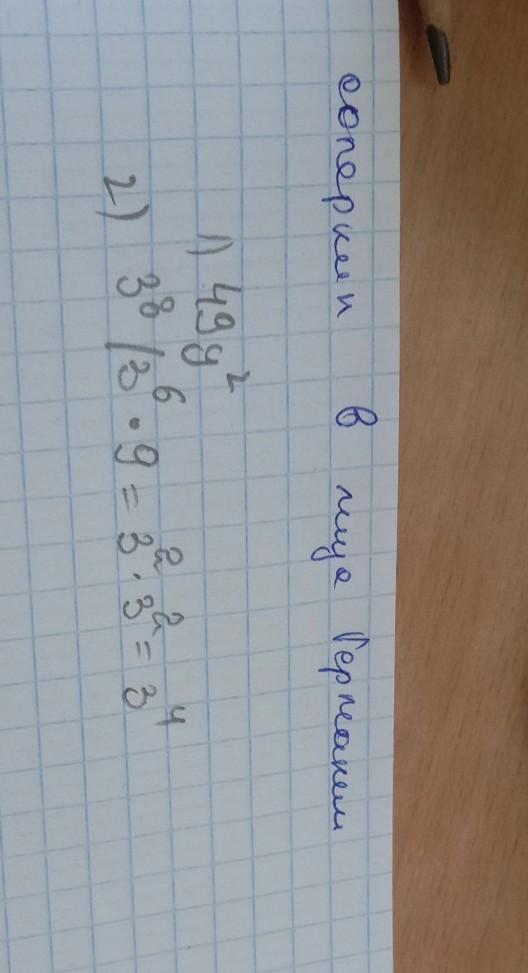 соперник в лице Германии
1) 49y²
2) 3⁸/3⁶ · 9 = 3² · 3² = 3⁴